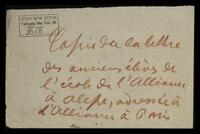 Yahuda Ms Var 38
Copie de la lettre
des anciens élèves de
l'école de l'Alliance
à Alep, adressée à
l'Alliance à Paris